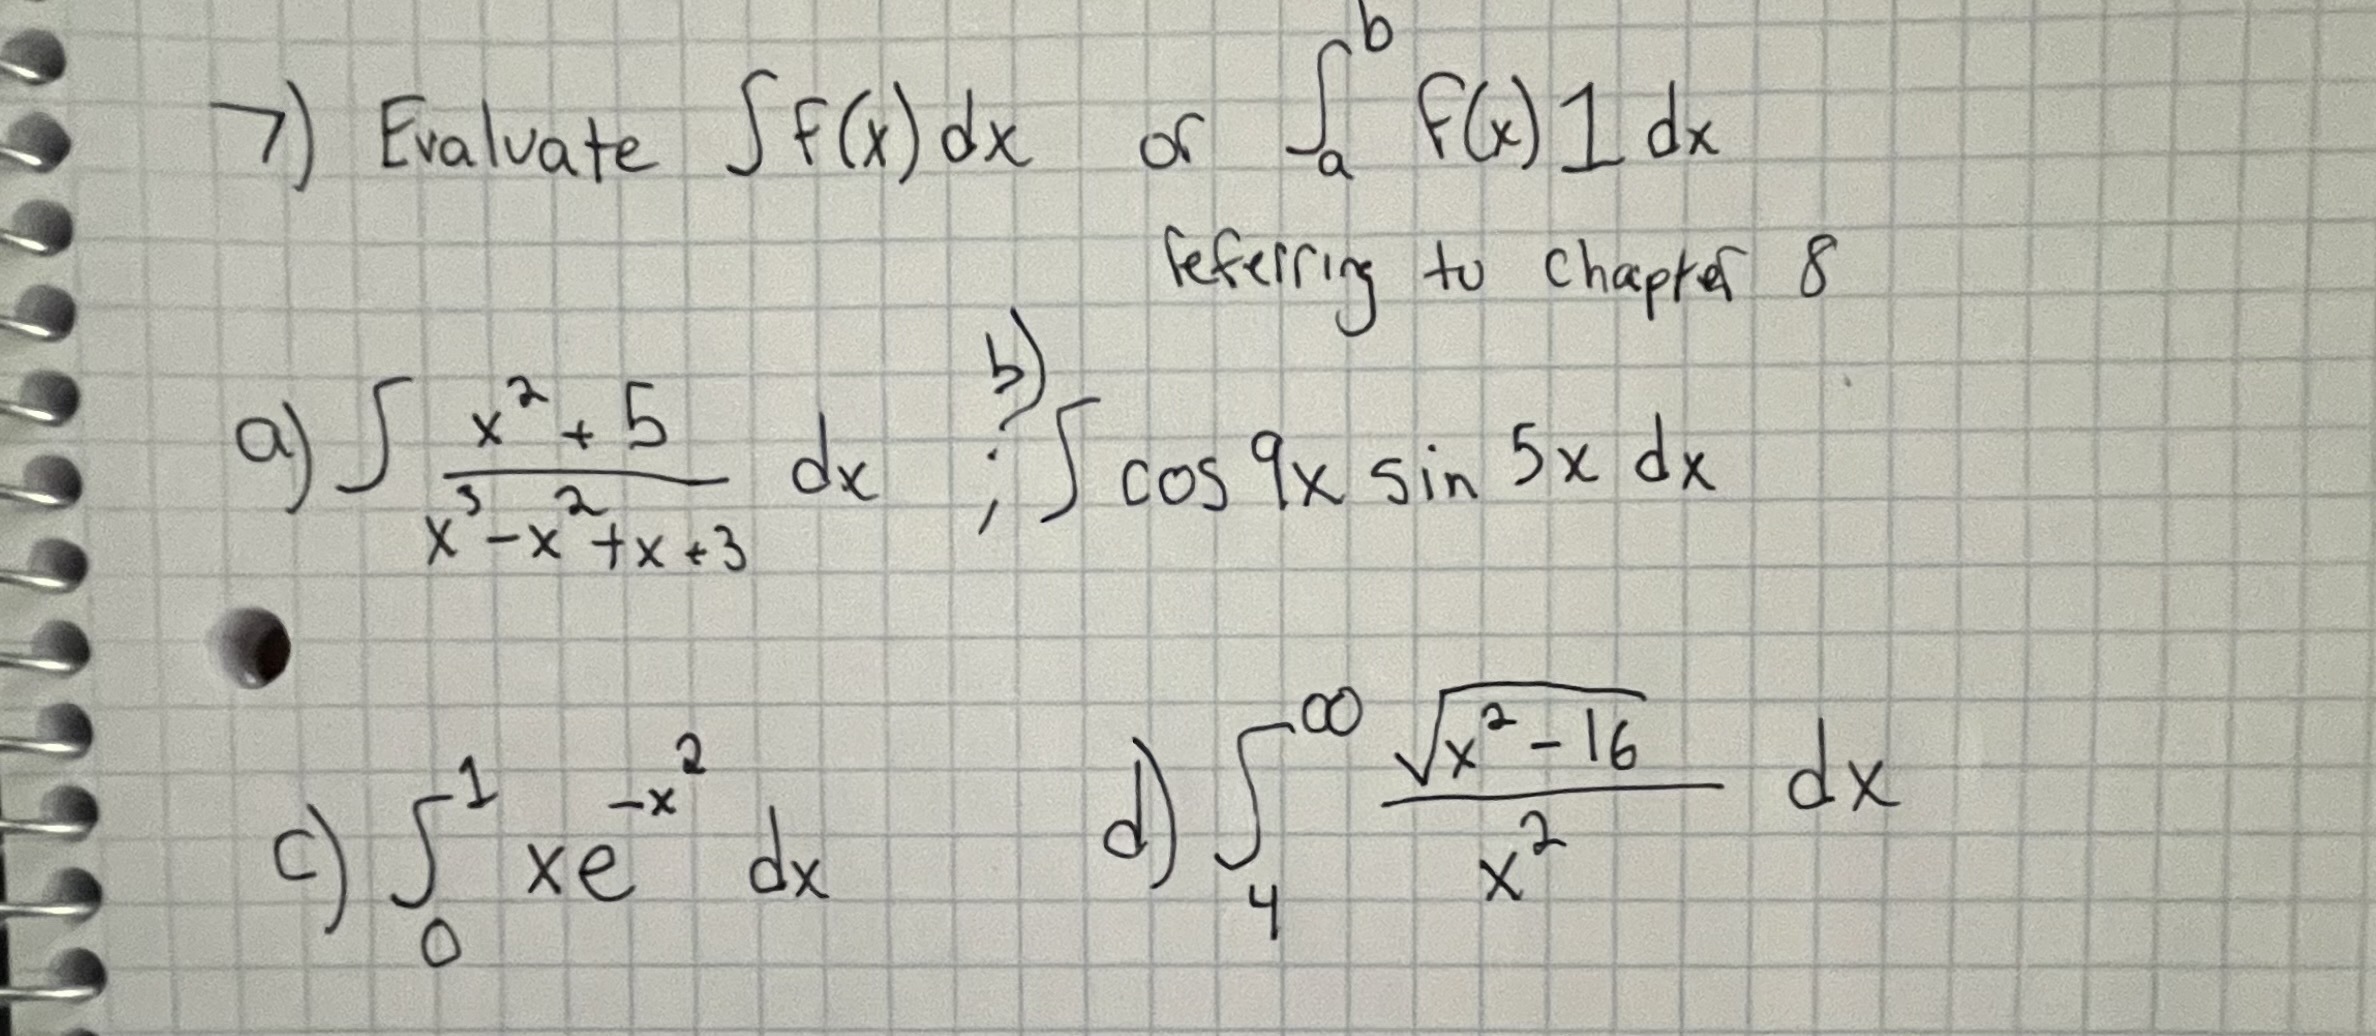 7) Evaluate ∫ f(x) dx or ∫_a^b f(x) 1 dx
referring to Chapter 8
a) ∫ (x² + 5)/(x³ - x² + x + 3) dx ; b) ∫ cos 9x sin 5x dx
c) ∫_0^1 xe^(-x²) dx d) ∫_4^∞ √(x² - 16)/x² dx